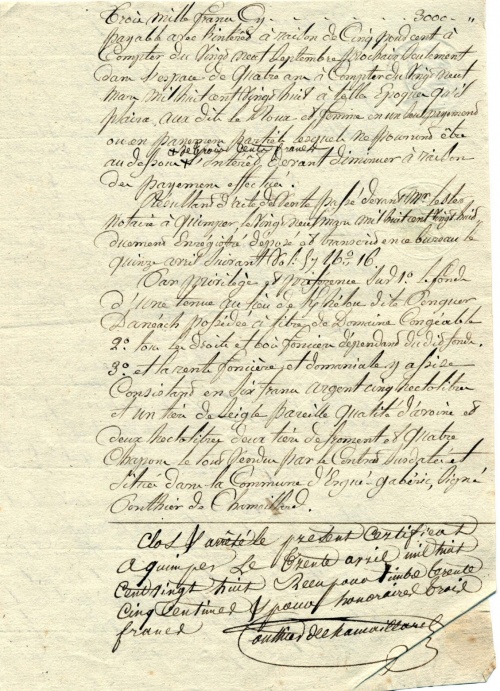 Trois mille francs Cy - - - - - - 3000 - "
payable avec l'intérêt à raison de Cinq pour cent à
Compter du Vingt neuf Septembre prochain Seulement
dans l'espace de Quatre ans à Compter du vingt neuf
mars mil huit cent vingt huit à telle Epoque qu'il
plaira, aux dits Le et femme en un seul payement
ou en payemens partiels lesquels ne pourront être
au dessous + l'intérêt devant diminuer à raison
+ de trois Cents francs
des payemens effectués.
Résultant d'acte de Vente passé devant Mr.
notaire à Quimper le Vingt neuf mars mil huit cent vingt huit
duement Enregistré déposé et transcrit en ce bureau le
Quinze avril Suivant Vol. 57 No. 16.
Par privilège et préférence Sur 1o. le fonds
d'une tenue au lieu de dite Penquer
Danéach possédée à titre de Domaine Congéable
2o. tous les droits et bois fonciers dépendant du dit fonds.
3o. et la rente foncière et domaniale y assise
Consistant en Six francs argent cinq hectolitres
et un tiers de Seigle pareille Quantité d'avoine et
deux hectolitres deux tiers de froment et Quatre
Chapons le tout dû par le Centre Susdaté et
Situé dans la Commune d'Ergué-gabéric, Signé
Ponthier de Chamaillard.
Clos & arrêté le présent Certificat
a quimper Le trente avril mil huit
Cent vingt huit Reçu pour timbre trente
Cinq Centimes & pour honoraires trois
francs Pouthier de Chamaillard